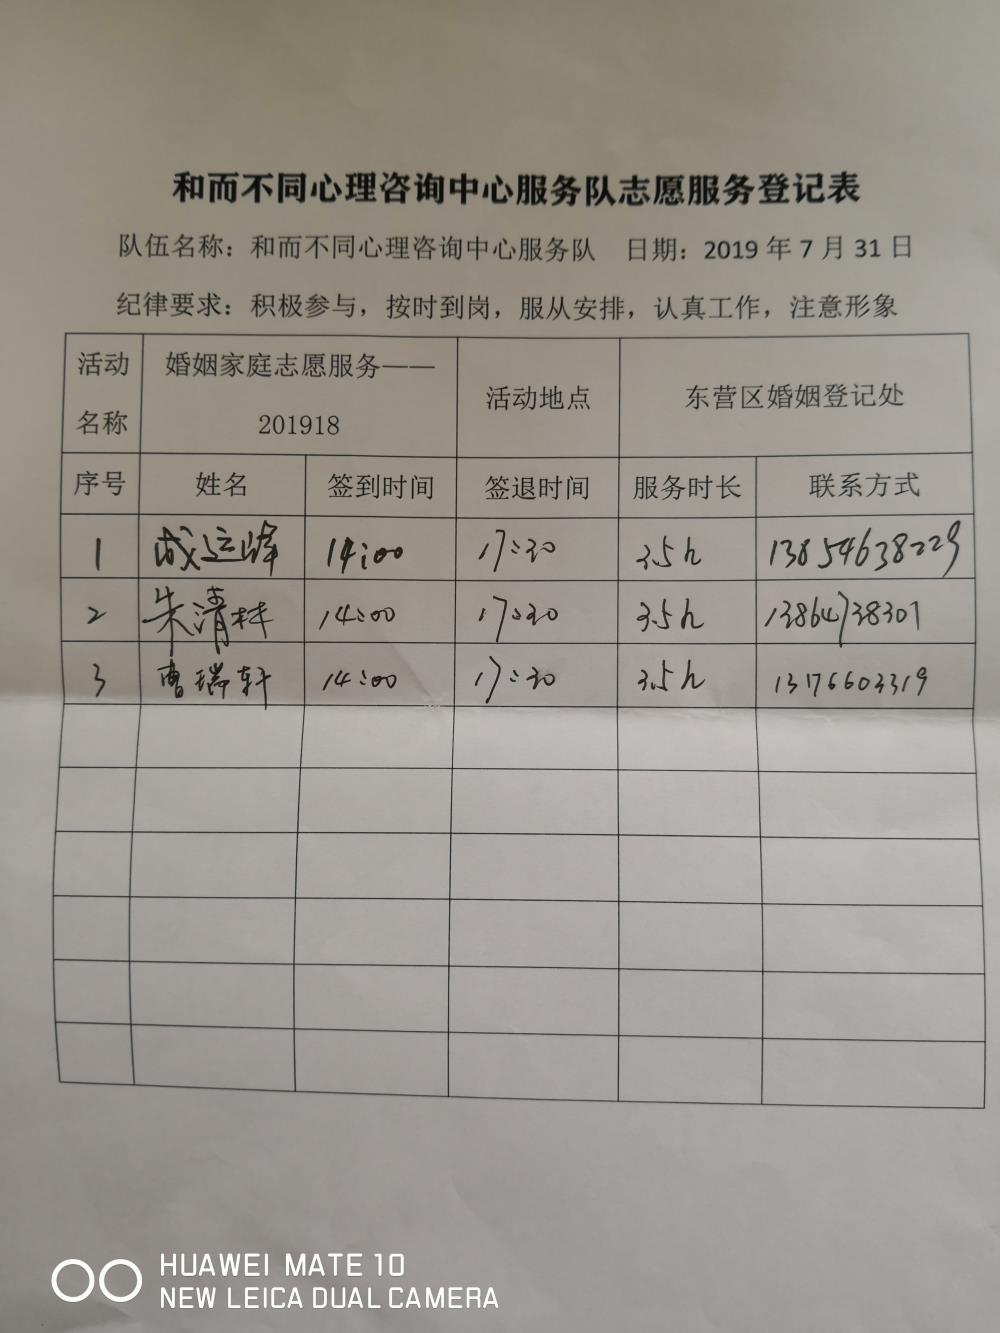 和而不同心理咨询中心服务队志愿服务登记表
队伍名称：和而不同心理咨询中心服务队 日期：2019 年 7 月 31 日
纪律要求：积极参与，按时到岗，服从安排，认真工作，注意形象
活动名称 婚姻家庭志愿服务——201918 活动地点 东营区婚姻登记处
序号 姓名 签到时间 签退时间 服务时长 联系方式
1 成运峰 14:00 17:30 3.5h 13854638229
2 朱清林 14:00 17:30 3.5h 13864738301
3 曹瑞轩 14:00 17:30 3.5h 13176603319
HUAWEI MATE 10
NEW LEICA DUAL CAMERA